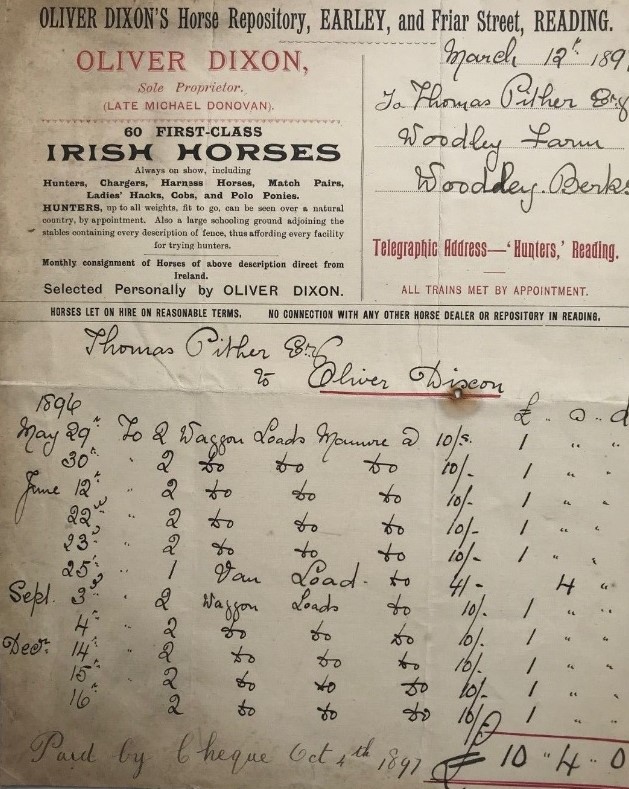 OLIVER DIXON'S Horse Repository, EARLEY, and Friar Street, READING.
OLIVER DIXON,
Sole Proprietor.
(LATE MICHAEL DONOVAN).
60 FIRST-CLASS
IRISH HORSES
Always on show, including
Hunters, Chargers, Harness Horses, Match Pairs,
Ladies' Hacks, Cobs, and Polo Ponies.
HUNTERS, up to all weights, fit to go, can be seen over a natural
country, by appointment. Also a large schooling ground adjoining the
stables containing every description of fence, thus affording every facility
for trying hunters.
Monthly consignment of Horses of above description direct from
Ireland.
Selected Personally by OLIVER DIXON.
March 12th 189
To Thomas Pither Esq
Woodley Farm
Woodley. Berks
Telegraphic Address—'Hunters,' Reading.
ALL TRAINS MET BY APPOINTMENT.
HORSES LET ON HIRE ON REASONABLE TERMS. NO CONNECTION WITH ANY OTHER HORSE DEALER OR REPOSITORY IN READING.
Thomas Pither Esq
to Oliver Dixon
1896 £ " s " d
May 29th To 2 Waggon Loads Manure @ 10/s. 1 " "
30th " 2 do do do 10/- 1 " "
June 12th " 2 do do do 10/- 1 " "
22nd " 2 do do do 10/- 1 " "
23rd " 2 do do do 10/- 1 " "
25th " 1 Van Load - do 4/- 4 "
Sept. 3rd " 2 Waggon Loads do 10/- 1 " "
4th " 2 do do do 10/- 1 " "
Decr. 14th " 2 do do do 10/- 1 " "
15th " 2 do do do 10/- 1 " "
16th " 2 do do do 10/- 1 " "
£ 10 " 4 " 0
Paid by Cheque Oct 4th 1897